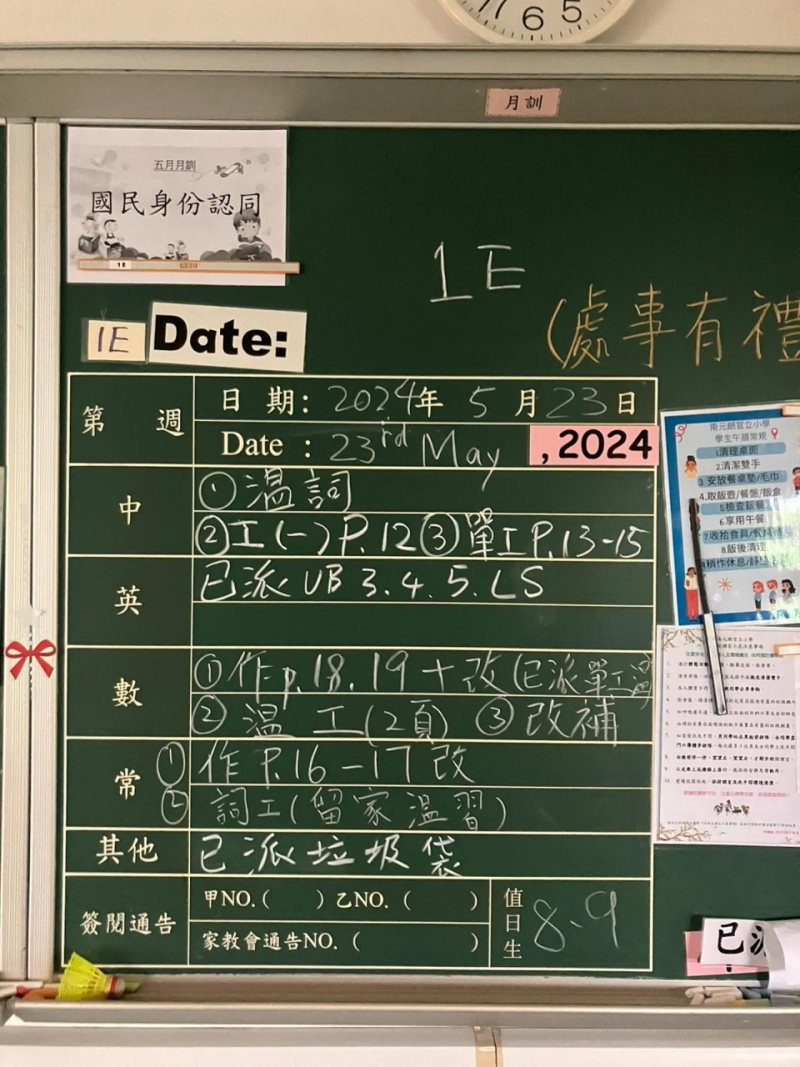 6 5
月訓
五月月訓
國民身份認同
1E
1E
(處事有禮
1E Date:
第 週
日 期: 2024年 5 月 23 日
Date : 23rd May , 2024
中
①溫詞
②工(一)P.12③單工P.13-15
英
已派UB 3.4.5.LS
數
①作p.18.19+改(已派單工溫
② 溫 工(2頁) ③改補
常
① 作P.16-17改
② 詞工(留家溫習)
其他
已派垃圾袋
簽閱通告
甲NO.( )乙NO. ( )
家教會通告NO. ( )
值日生
8、9
南元朗官立小學
學生午膳常規
1.清理桌面
2.清潔雙手
3.安放餐桌墊/毛巾
4.取飯壺/餐盤/飯盒
5.檢查飯餐
6.享用午餐
7.收拾食具/
8.飯後清理
9.稍作休息/靜
已派